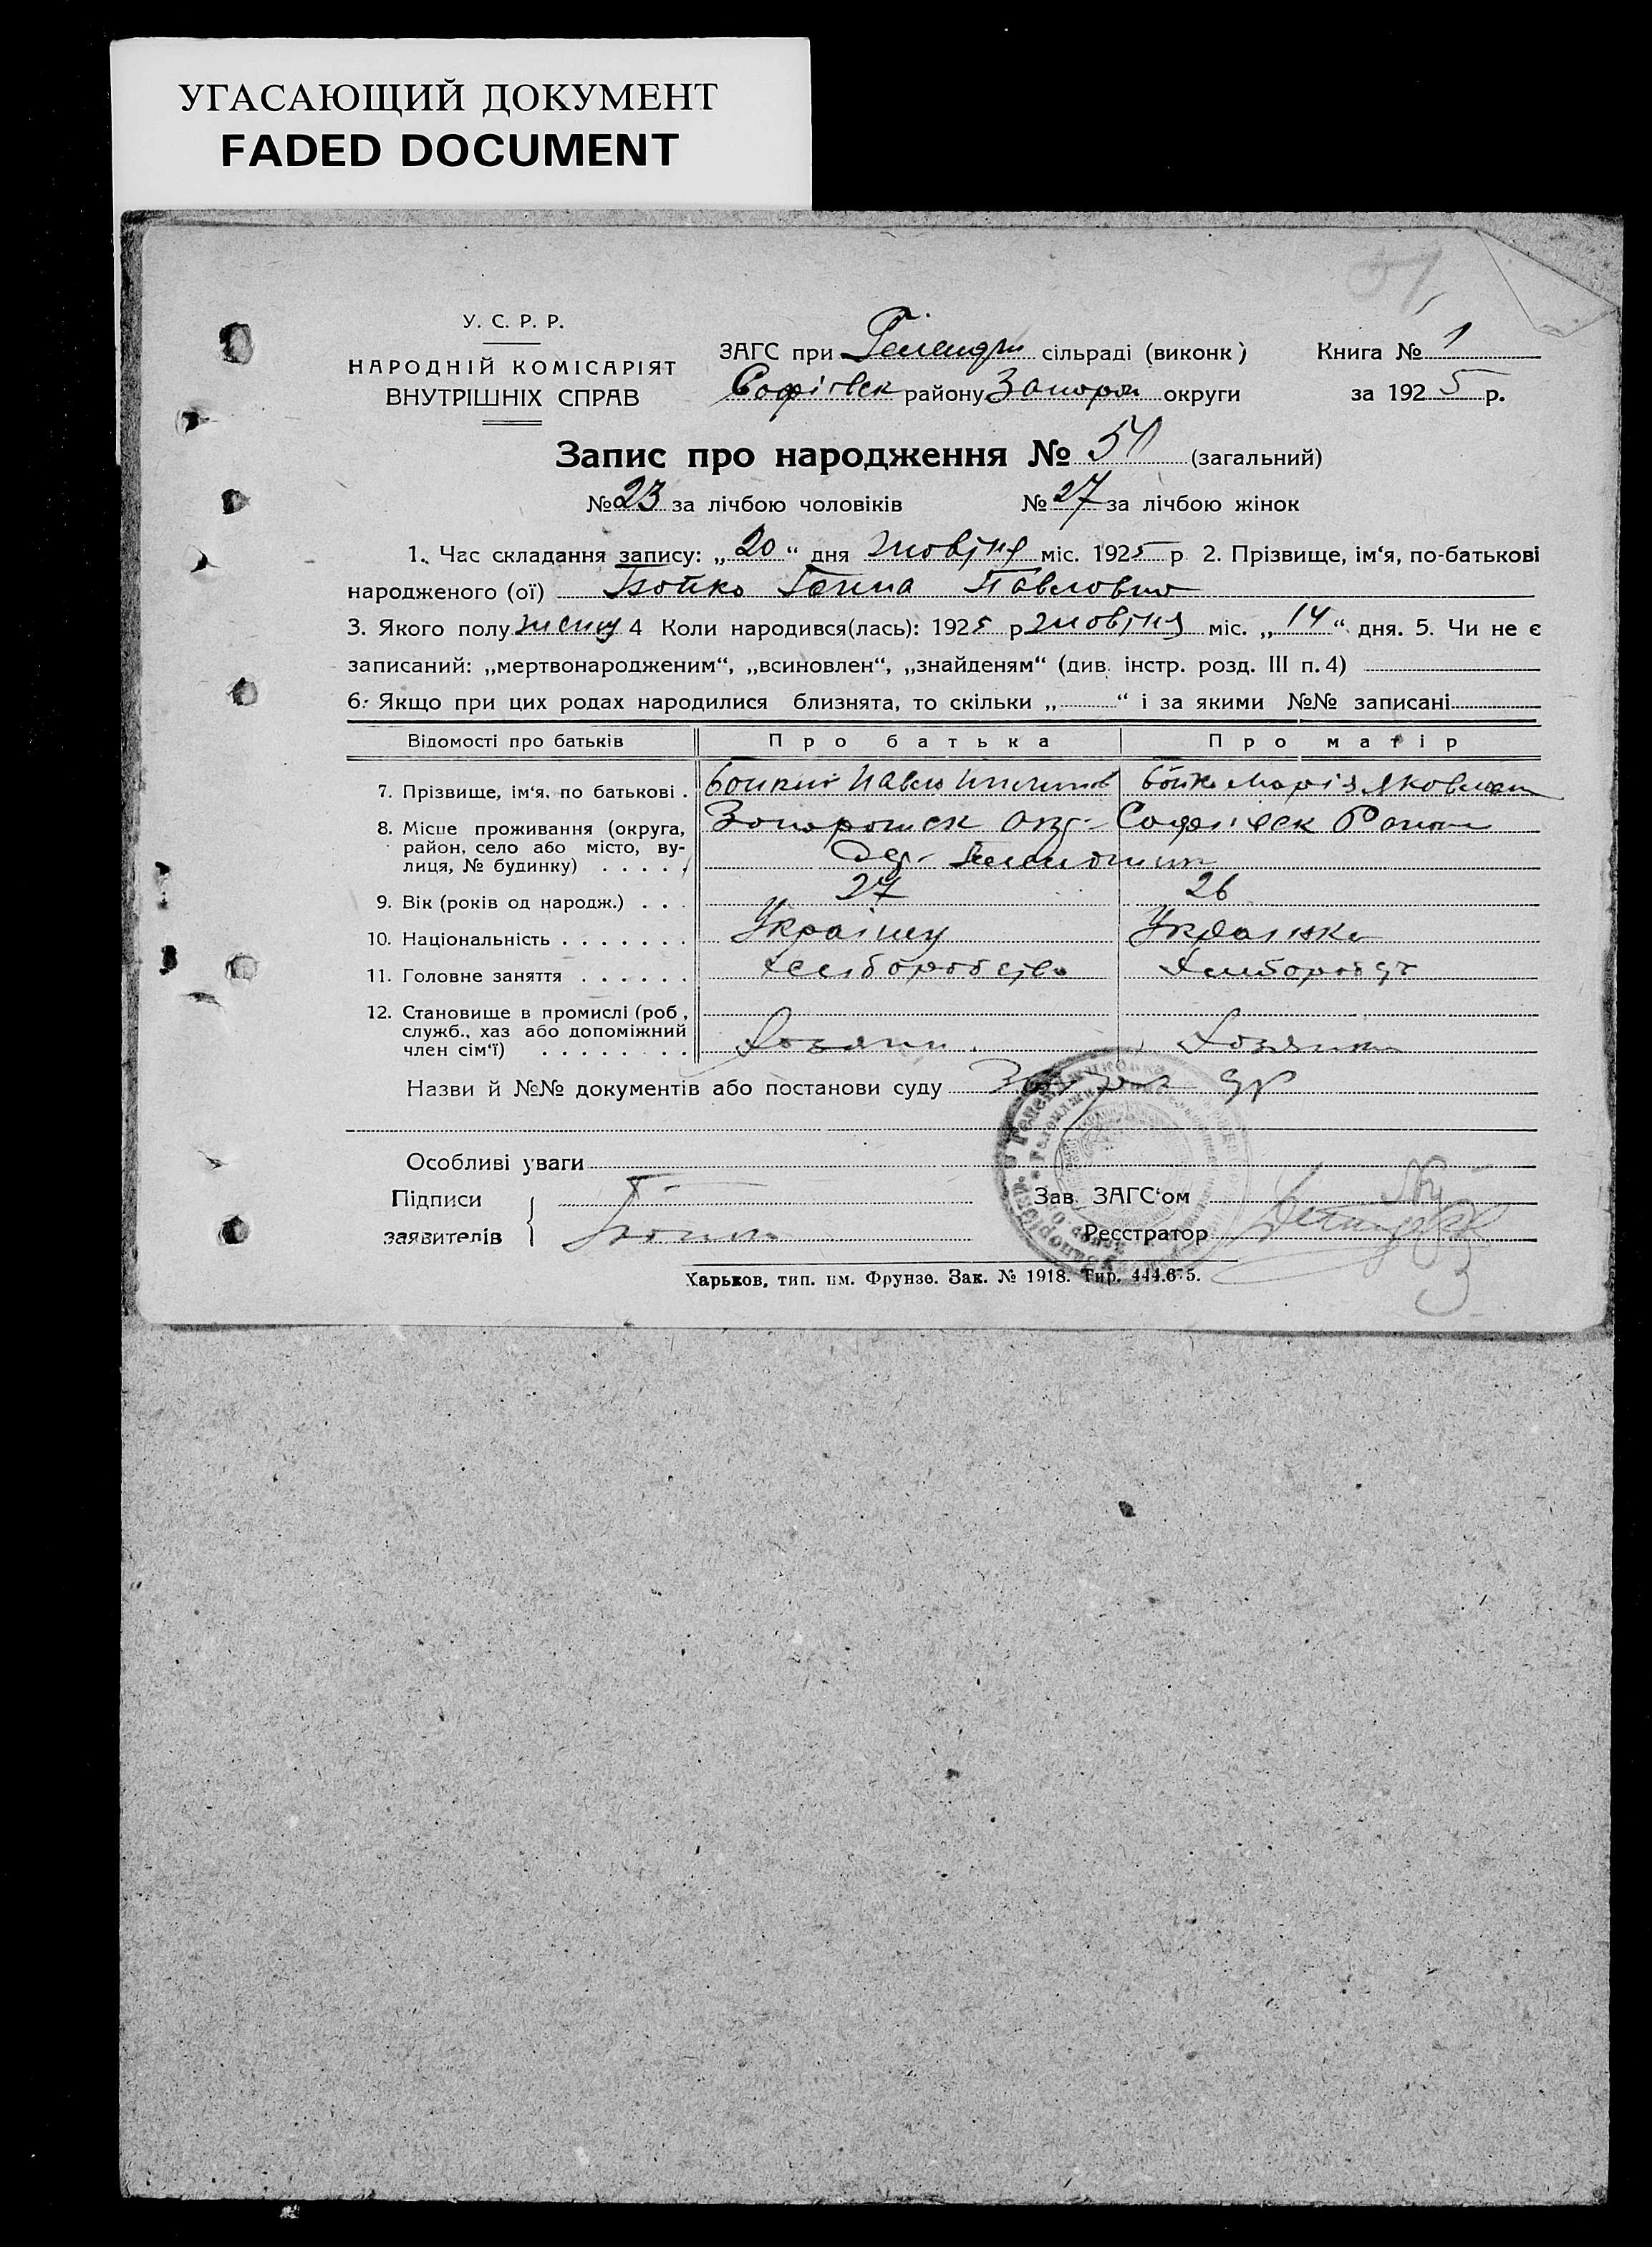 УГАСАЮЩИЙ ДОКУМЕНТ
FADED DOCUMENT
У. С. Р. Р.
НАРОДНІЙ КОМІСАРІЯТ
ВНУТРІШНІХ СПРАВ
ЗАГС при сільраді (виконк)
Софіївск району Запорож округи
Книга № 1
за 1925 р.
Запис про народження № (загальний)
№ 23 за лічбою чоловіків № 27 за лічбою жінок
1. Час складання запису: „20“ дня жовтня міс. 1925 р 2. Прізвище, ім‘я, по-батькові
народженого (ої) Бойко Ганна Павловна
3. Якого полу 4 Коли народився(лась): 1925 р жовтня міс. „14“ дня. 5. Чи не є
записаний: „мертвонародженим“, „всиновлен“, „знайденям“ (див. інстр. розд. III п. 4)
6. Якщо при цих родах народилися близнята, то скільки „ “ і за якими №№ записані
Відомості про батьків Про батька Про матір
7. Прізвище, ім‘я, по батькові . Бойко Павло Бойко Марія Яковлевна
8. Місце проживання (округа, район, село або місто, вулиця, № будинку) . . . . . Запорожск окр. Софіївск Район
9. Вік (років од народж.) . . . 27 26
10. Національність . . . . . . . Українец Українка
11. Головне заняття . . . . . . Хліборобство
12. Становище в промислі (роб, служб., хаз або допоміжний член сім‘ї) . . . . . . . . Хозяин Хозяйка
Назви й №№ документів або постанови суду
Особливі уваги
Підписи
заявителів
Зав. ЗАГС‘ом
Реєстратор
Харьков, тип. им. Фрунзе. Зак. № 1918. Тир. 444.675.